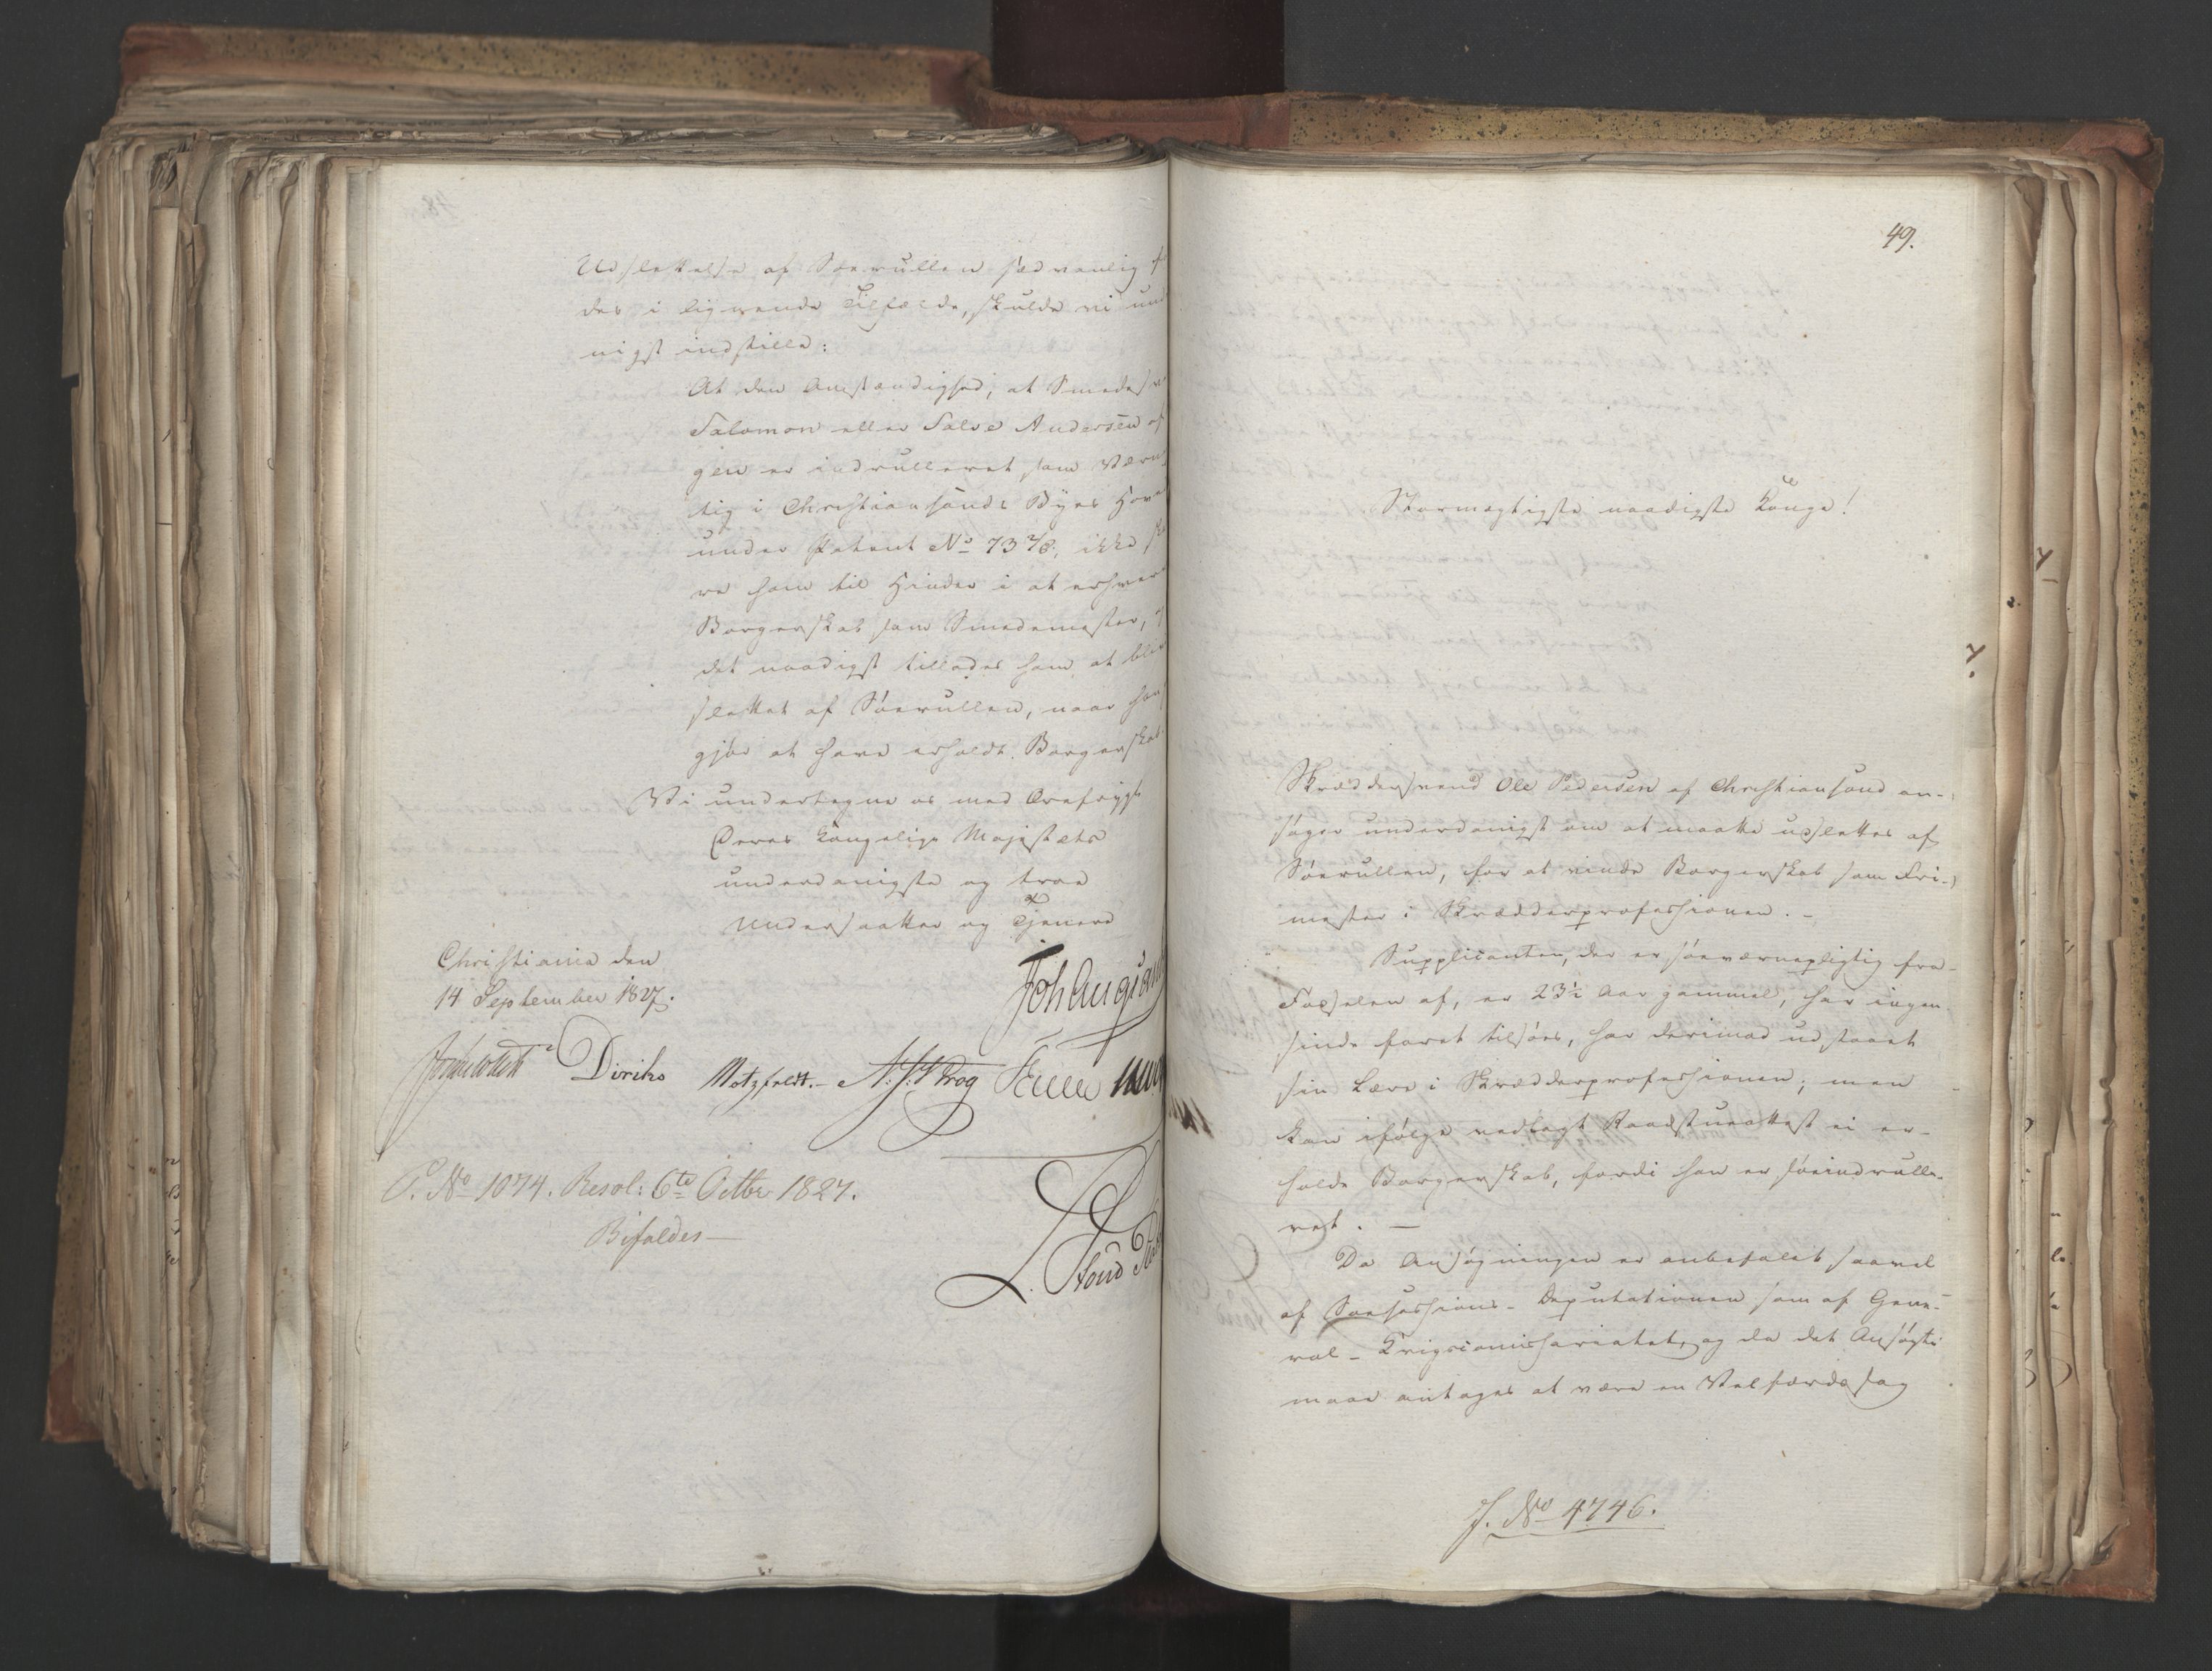 Udslettelse af Søerullen sædvanlig
des i lignende Tilfælde, skulde vi und
nigst indstille:
At den Omstændighed, at Smedes
Salomon eller Salve Andersen af
gen er indrulleret som Værn
tig i Christiansands Byes Hoved
under Patent No 73 7/8, ikke
re ham til Hinder i at erhver
Borgerskab som Smedemester,
det naadigst tillades ham at bliv
slettet af Søerullen, naar han
gjør at have erholdt Borgerskab
Vi undertegne os med Ærefrygt
Deres Kongelige Majestæts
underdanigste og troe
Undersaatter og Tjenere
Christiania den
14 September 1827.
Joh Aug Sand
Diriks Motzfeldt. Krog
P. No 1074. Resol: 6te Octbr 1827.
Bifaldes
49.
Stormægtigste naadigste Konge!
Skræddersvend Ole Pedersen af Christiansand an-
søger underdanigst om at maatte udslettes af
Søerullen, for at vinde Borgerskab som Fri-
mester i Skrædderprofessionen. -
Supplicanten, der er søeværnepligtig fra
Fødselen af, er 23½ Aar gammel, har ingen-
sinde faret tilsøes, har derimod udstaaet
sin Lære i Skrædderprofessionen; men
kan ifølge vedlagt Raadstueattest ei er-
holde Borgerskab, fordi han er søeindrulle-
ret. —
Da Ansøgningen er anbefalet saavel
af Søesessions-Deputationen som af Gene-
ral-Krigscommissariatet, og da det Ansøgte
maae antages at være en Velfærdssag
J. No 4746.